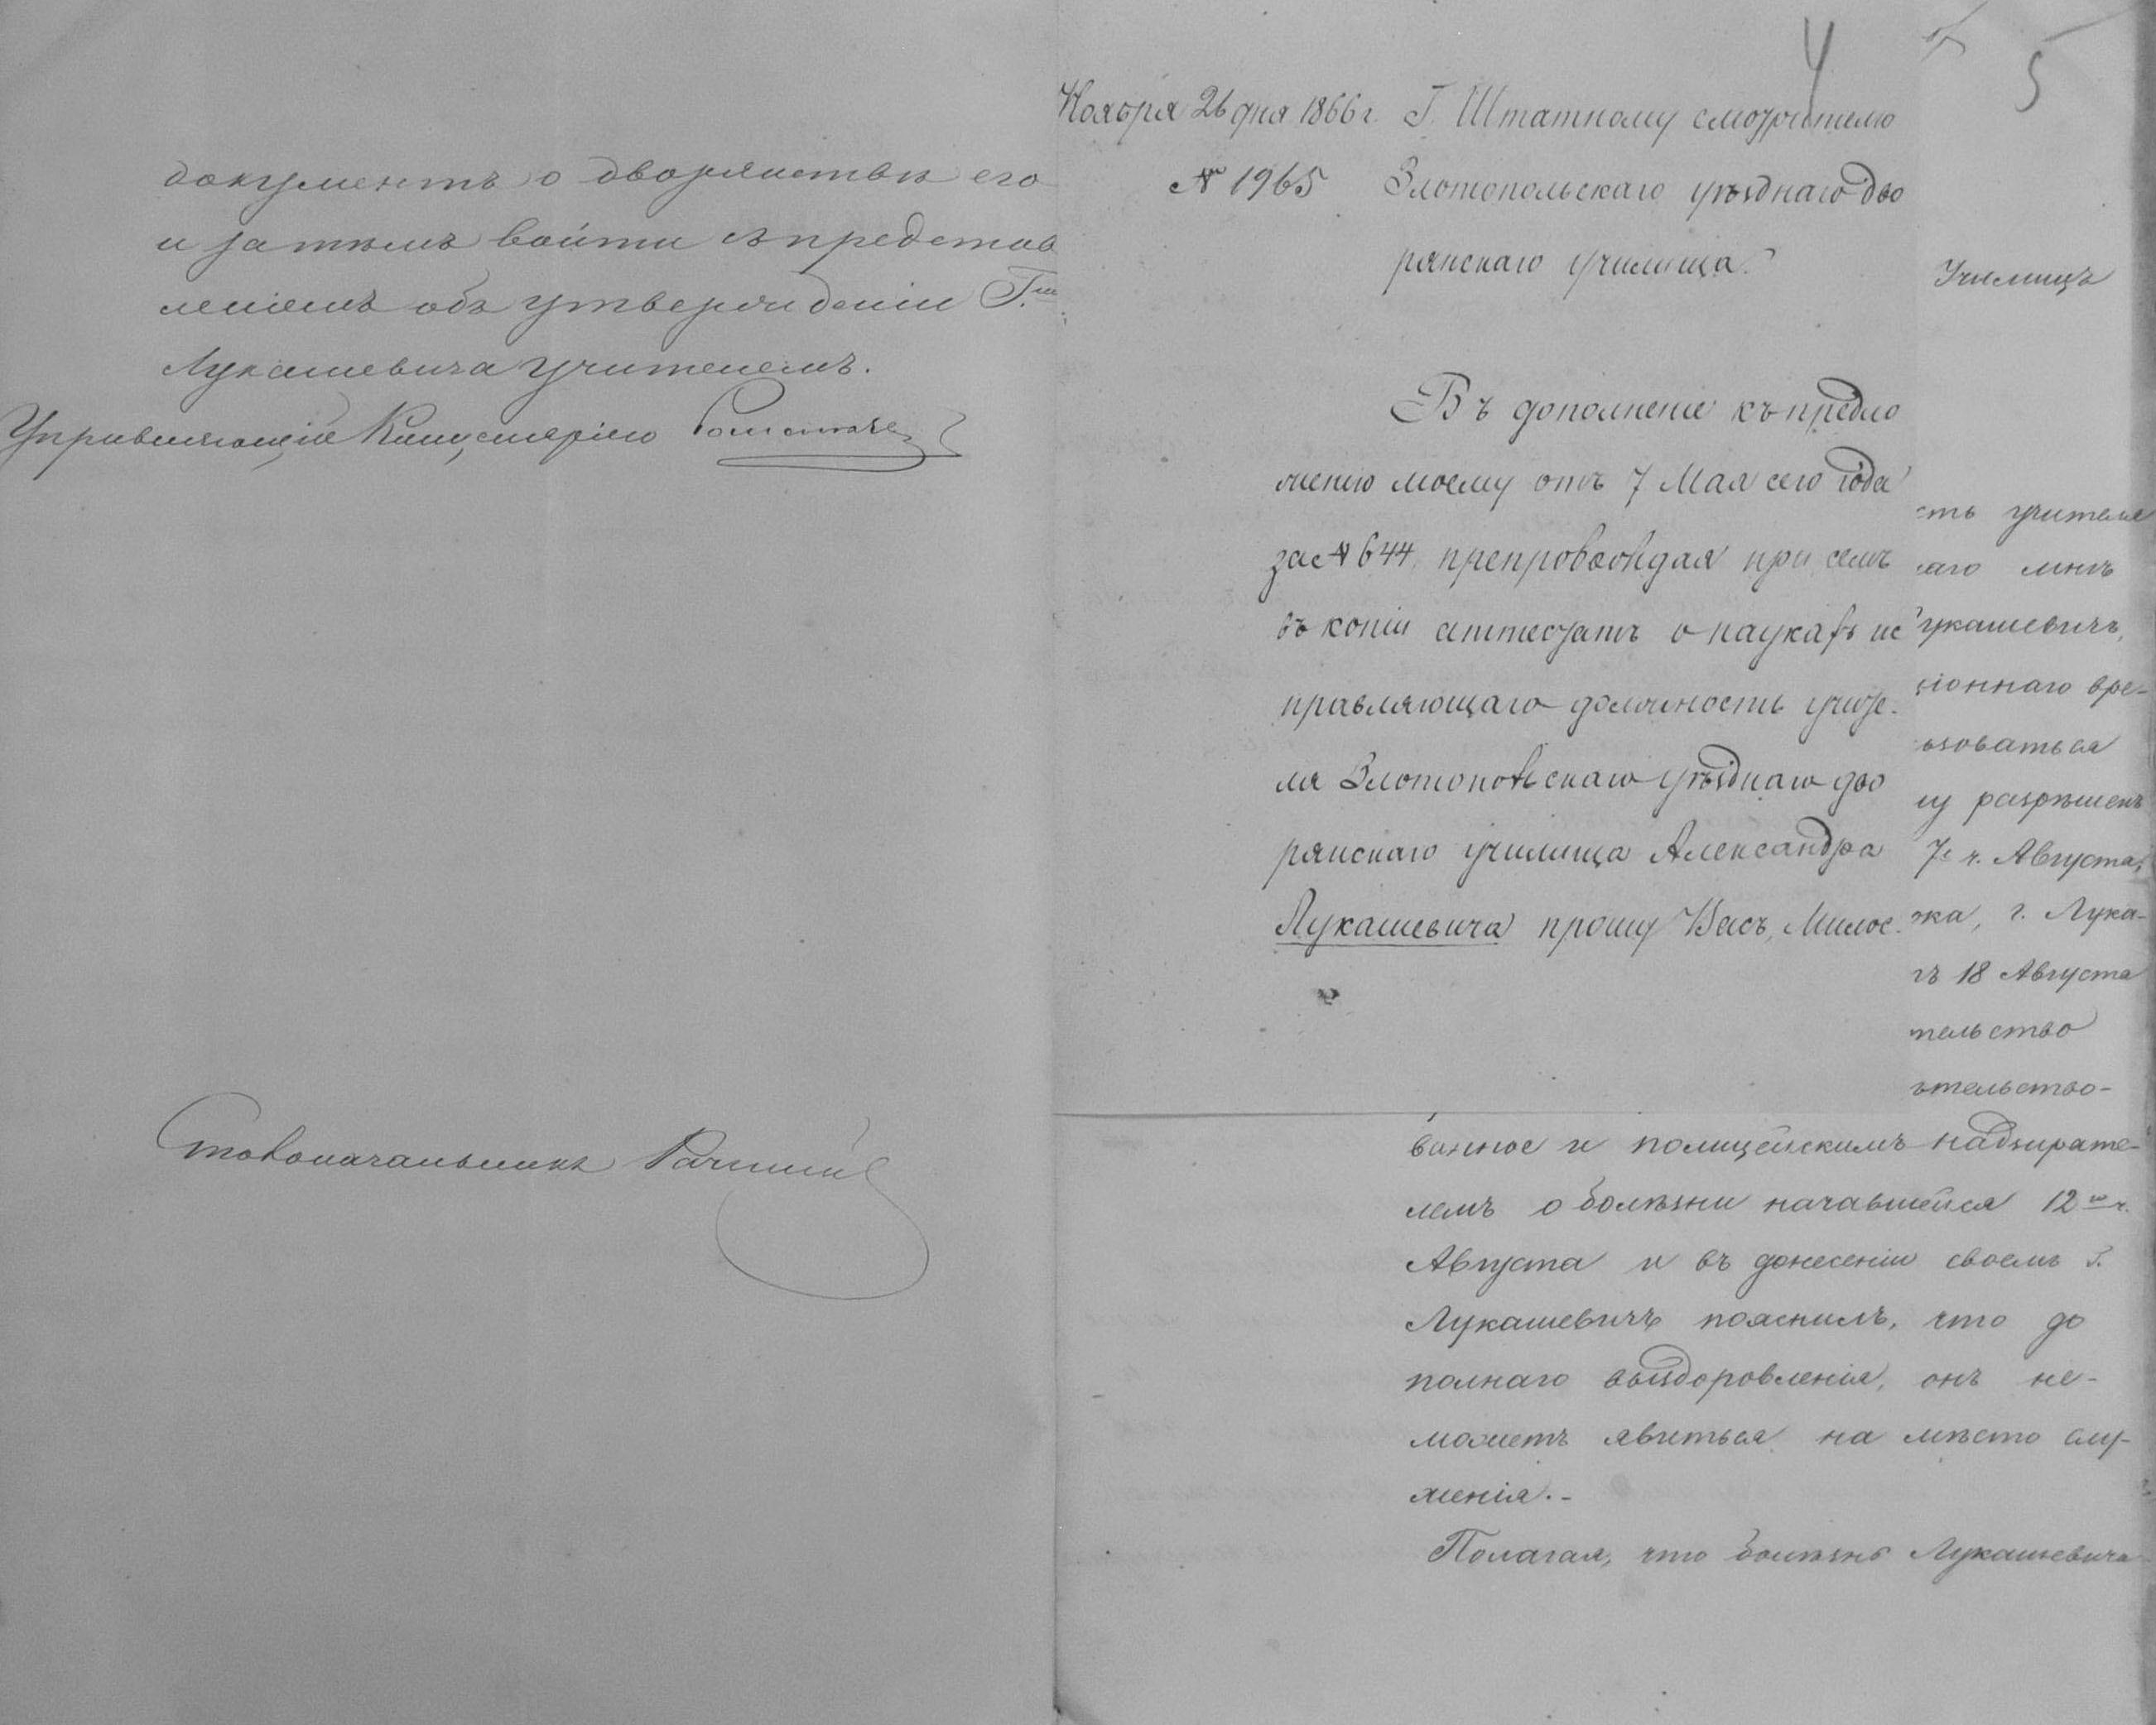 документъ о дворянствѣ его
и затѣмъ войти съ представ
леніемъ объ утвержденіи Г.
Лукашевича учителемъ.
Управляющій Канцеляріею
Столоначальникъ
4
5
Ноября 26 дня 1866 г.
№ 1965
Г. Штатному смотрителю
Злотопольскаго уѣзднаго дво
рянскаго училища.
Въ дополненіе къ предло
женію моему отъ 7 Мая сего года
за № 644, препровождая при семъ
въ копіи аттестатъ о наукахъ ис
правляющаго должность учите-
ля Злотопольскаго уѣзднаго дво
рянскаго училища Александра
Лукашевича прошу Васъ, Милос.
Училищъ
сть учителя
аго мнѣ
укашевичъ,
ціоннаго вре-
ьзоваться
му разрѣшенъ
7е ч. Августа,
жка, г. Лука-
гъ 18 Августа
тельство
ѣтельство-
ванное и полицейскимъ надзирате-
лемъ о болѣзни начавшейся 12го ч.
Августа и въ донесеніи своемъ Г.
Лукашевичъ пояснилъ, что до
полнаго выздоровленія, онъ не-
можетъ явиться на мѣсто слу-
женія.-
Полагая, что болѣзнь Лукашевича